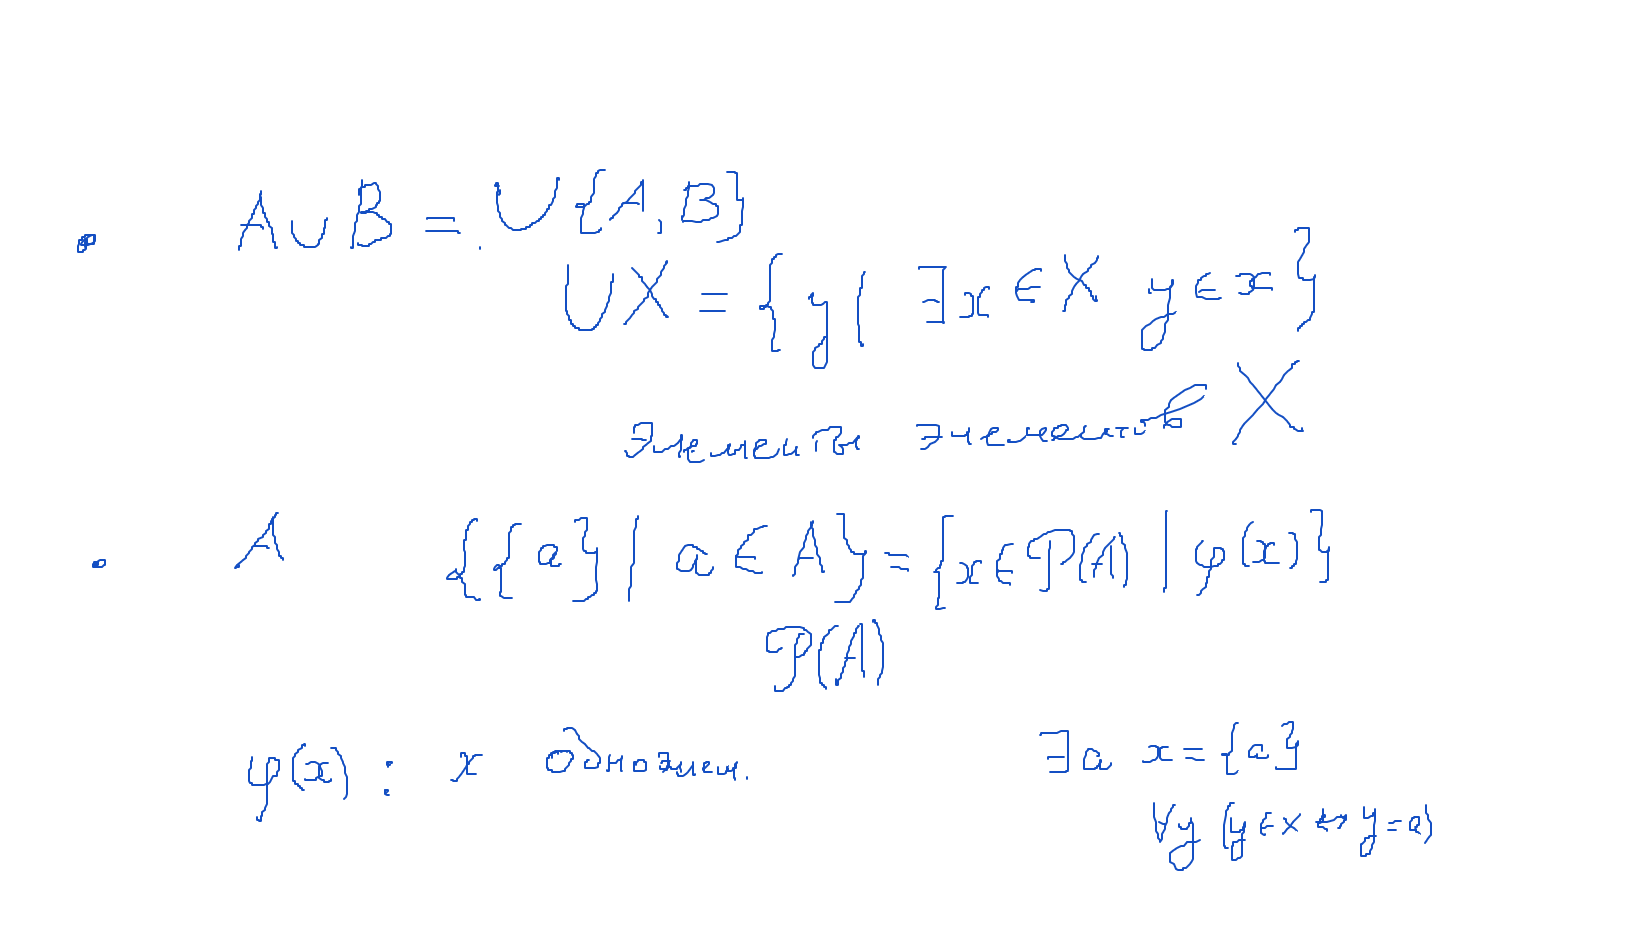 • A∪B = ∪{A, B}
∪X = {y | ∃x∈X y∈x}
Элементы элементов X
• A {{a} | a∈A} = {x∈P(A) | φ(x)}
P(A)
φ(x): x одноэлем. ∃a x={a}
∀y (y∈x ↔ y=a)